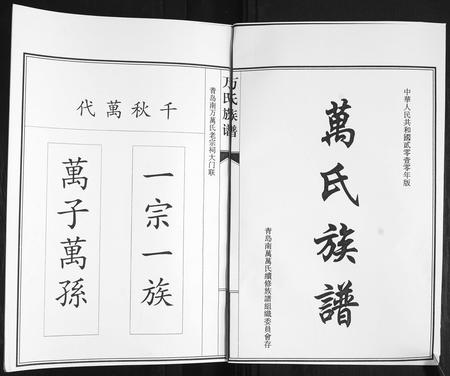 中華人民共和國貳零壹零年版
萬氏族譜
青島南萬萬氏續修族譜組織委員會存
万氏族谱
青岛南万萬氏老宗祠大门联
千秋萬代
一宗一族
萬子萬孫